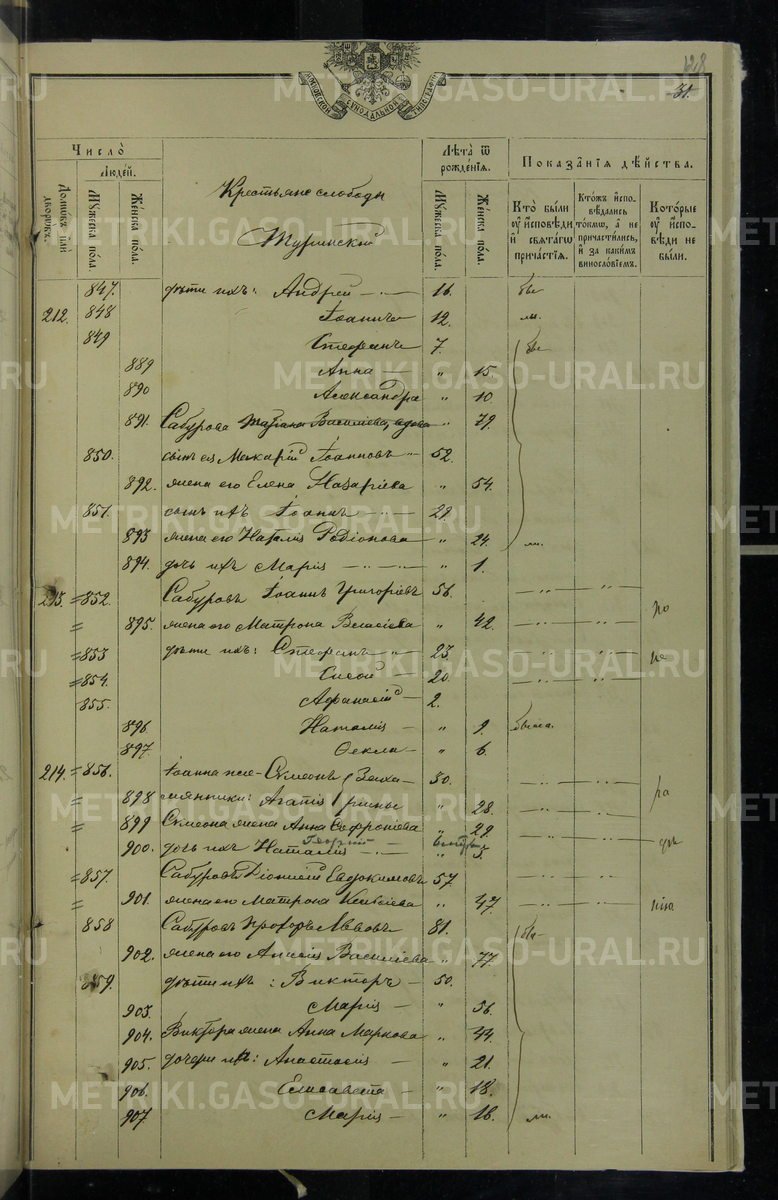 128
31.
МОСКОВСКОЙ СѴНОДАЛЬНОЙ ТИПОГРАФІИ
Число̀
Людей.
Домѡвъ или дворѡвъ.
Мужеска пола.
Женска пола.
Крестьяне слободы
Туринской
Лѣта ѿ рожденїѧ.
Мужеска пола.
Женска пола.
Показанїѧ дѣйства.
Кто были оу исповѣди и свѧтагѡ причастїѧ.
Ктожъ исповѣдались токмѡ, а не причастились, и за какимъ винословїемъ.
Которые оу исповѣди не были.
847. дѣти ихъ: Андрей — 16. бы
212. 848 Іоаннъ 12. ли.
849 Стефанъ 7. бы
889 Анна — " 15.
890 Александра " 10
891. Сабурова Татіана Василіева, вдова " 79.
850. сынъ ея Макарій Іоанновъ " 52.
892. жена его Елена Назаріева " 54.
851. сынъ ихъ Іоаннъ 29.
893 жена его Наталія Родіонова " 24. ли.
894. дочь ихъ Марія " 1.
213. = 852. Сабуровъ Іоаннъ Григоріевъ 56.
= 895. жена его Матрона " 42. по
= 853 дѣти ихъ: Стефанъ " 23 не
= 854. Елисей — 20.
855. Афанасій — 2.
896 Наталія — " 9. была.
897 Ѳекла — " 6.
214. = 856. Симеонъ 50.
= 898 Агапія " 28. ра
= 899 Симеона жена Анна Софроніева " 22
900. дочь ихъ Наталія " 3. дѣ
Георгій
= 857. Сабуровъ Діонисій Евдокимовъ 57.
= 901. жена его Матрона " 47. нію
858 Сабуровъ Прохоръ Львовъ 81. бы
902. жена его Анисія Василіева " 77.
859. дѣти ихъ: Викторъ — 50.
903. Марія — " 56.
904. Виктора жена Анна Маркова " 44.
905. дочери ихъ: Анастасія — " 21.
906. Елисавета — " 18.
907. Марія — " 16. ли.
METRIKI.GASO-URAL.RU